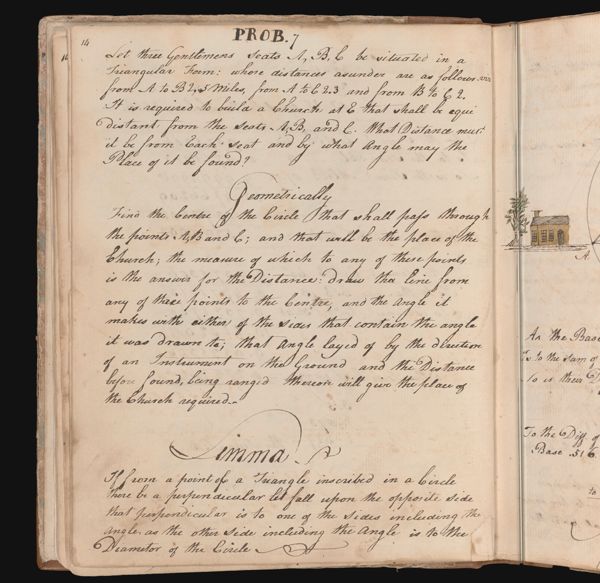 14
PROB. 7
14
Let three Gentlemens Seats A, B, C be situated in a
Triangular Form: whose distances asunder are as follows viz
from A to B 2,5 Miles, from A to C 2.3 and from B to C 2.
It is required to build a Church at E that shall be equi
distant from the Seats A, B, and C. What Distance must
it be from Each Seat and by what Angle may the
Place of it be found?
Geometrically
Find the Centre of the Circle that shall pass through
the points A, B and C; and that will be the place of the
Church; the measure of which to any of these points
is the answer for the Distance: draw the line from
any of these points to the Centre, and the Angle it
makes with either of the sides that contain the angle
it was drawn to; that Angle layed of by the direction
of an Instrument on the Ground and the Distance
before found, being rang'd thereon will give the place of
the Church required.
Limma
If from a point of a Triangle inscribed in a Circle
there be a perpendicular let fall upon the opposite side
that perpendicular is to one of the sides including the
Angle, as the other Side including the Angle is to the
Diameter of the Circle
A
As the Base
Is to the Sum of
So is their
To the Diff of
Base .516
to